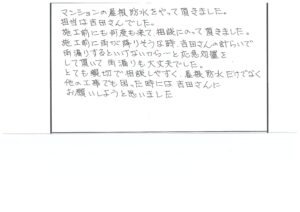 マンションの屋根防水をやって頂きました。
担当は吉田さんでした。
施工前にも何度も来て相談にのって頂きました。
施工前に雨が降りそうな時、吉田さんの計らいで
雨漏りするといけないから…と応急処置を
して頂いて雨漏りも大丈夫でした。
とても親切で相談しやすく、屋根防水だけでなく
他の工事でも困った時には吉田さんに
お願いしようと思いました